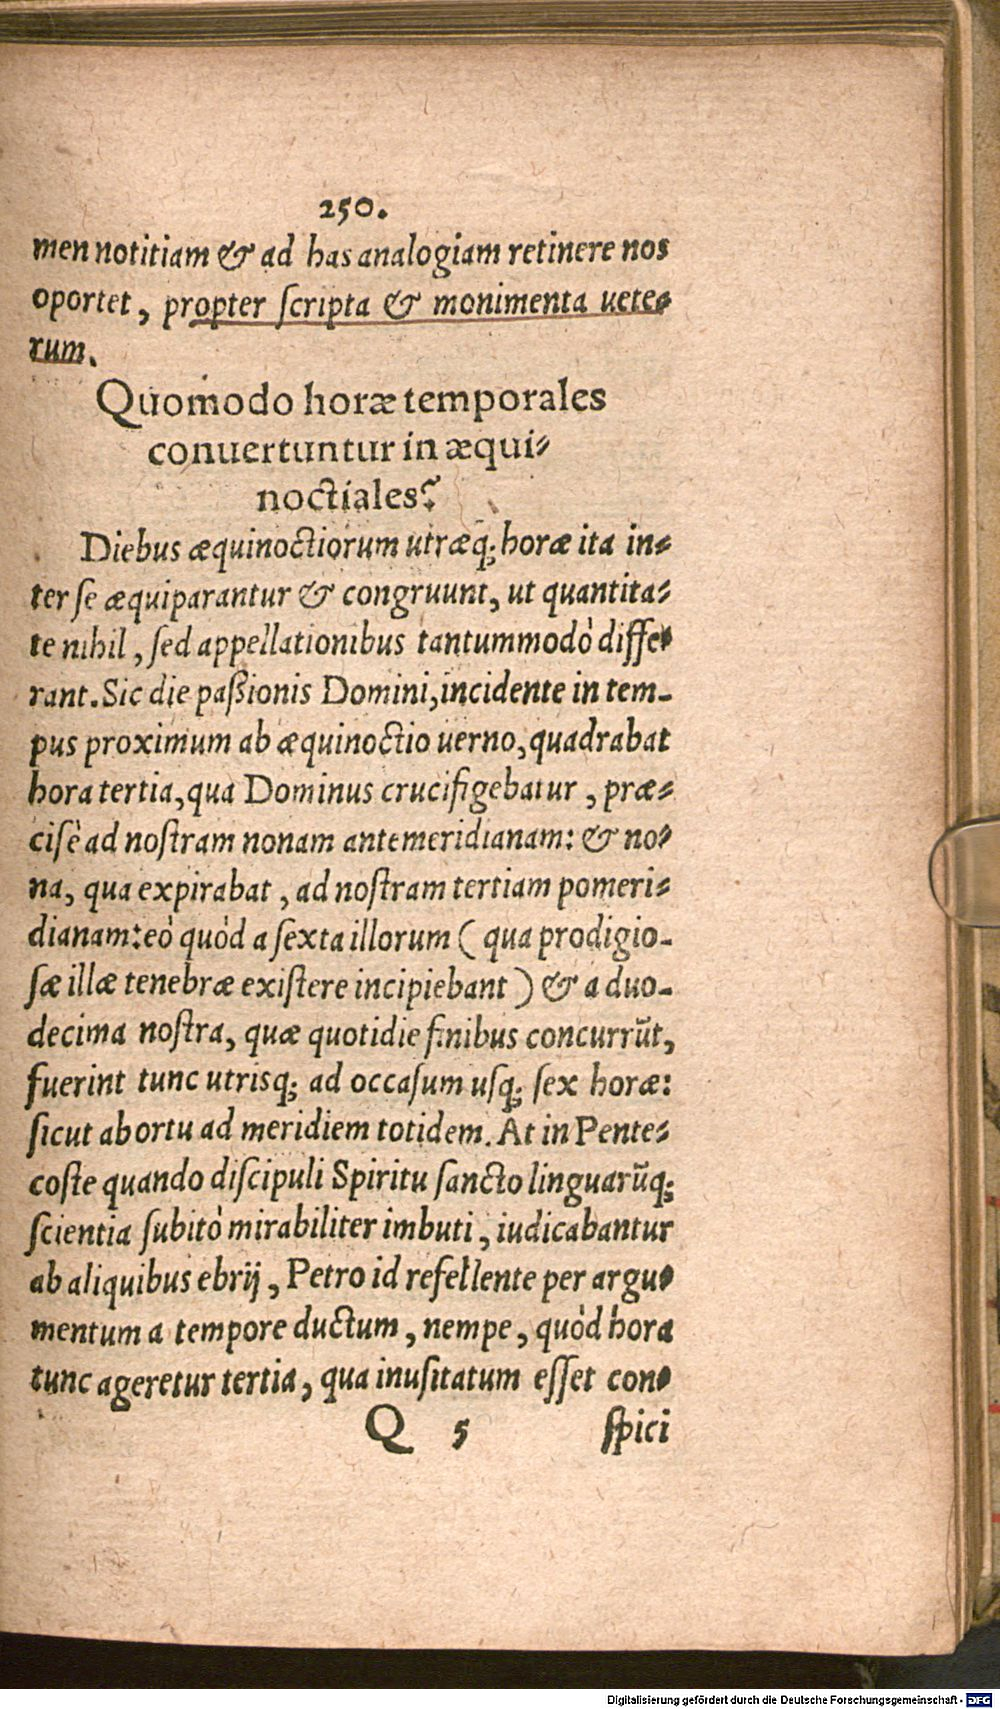 250.
men notitiam & ad has analogiam retinere nos
oportet, propter ſcripta & monimenta uete-
rum.
Quomodo horæ temporales
conuertuntur in æqui-
noctiales?
Diebus æquinoctiorum utræq; horæ ita in-
ter ſe æquiparantur & congruunt, ut quantita-
te nihil, ſed appellationibus tantummodò diffe-
rant. Sic die paſsionis Domini, incidente in tem-
pus proximum ab æquinoctio uerno, quadrabat
hora tertia, qua Dominus crucifigebatur, præ-
ciſè ad noſtram nonam antemeridianam: & no-
na, qua expirabat, ad noſtram tertiam pomeri-
dianam: eò quòd a ſexta illorum ( qua prodigio-
ſæ illæ tenebræ exiſtere incipiebant ) & a duo-
decima noſtra, quæ quotidie finibus concurrũt,
fuerint tunc utrisq; ad occaſum uſq; ſex horæ:
ſicut ab ortu ad meridiem totidem. At in Pente-
coſte quando diſcipuli Spiritu ſancto linguarũq;
ſcientia ſubitò mirabiliter imbuti, iudicabantur
ab aliquibus ebrij, Petro id refellente per argu-
mentum a tempore ductum, nempe, quòd hora
tunc ageretur tertia, qua inuſitatum eſſet con-
Q 5 ſpici
Digitalisierung gefördert durch die Deutsche Forschungsgemeinschaft - DFG